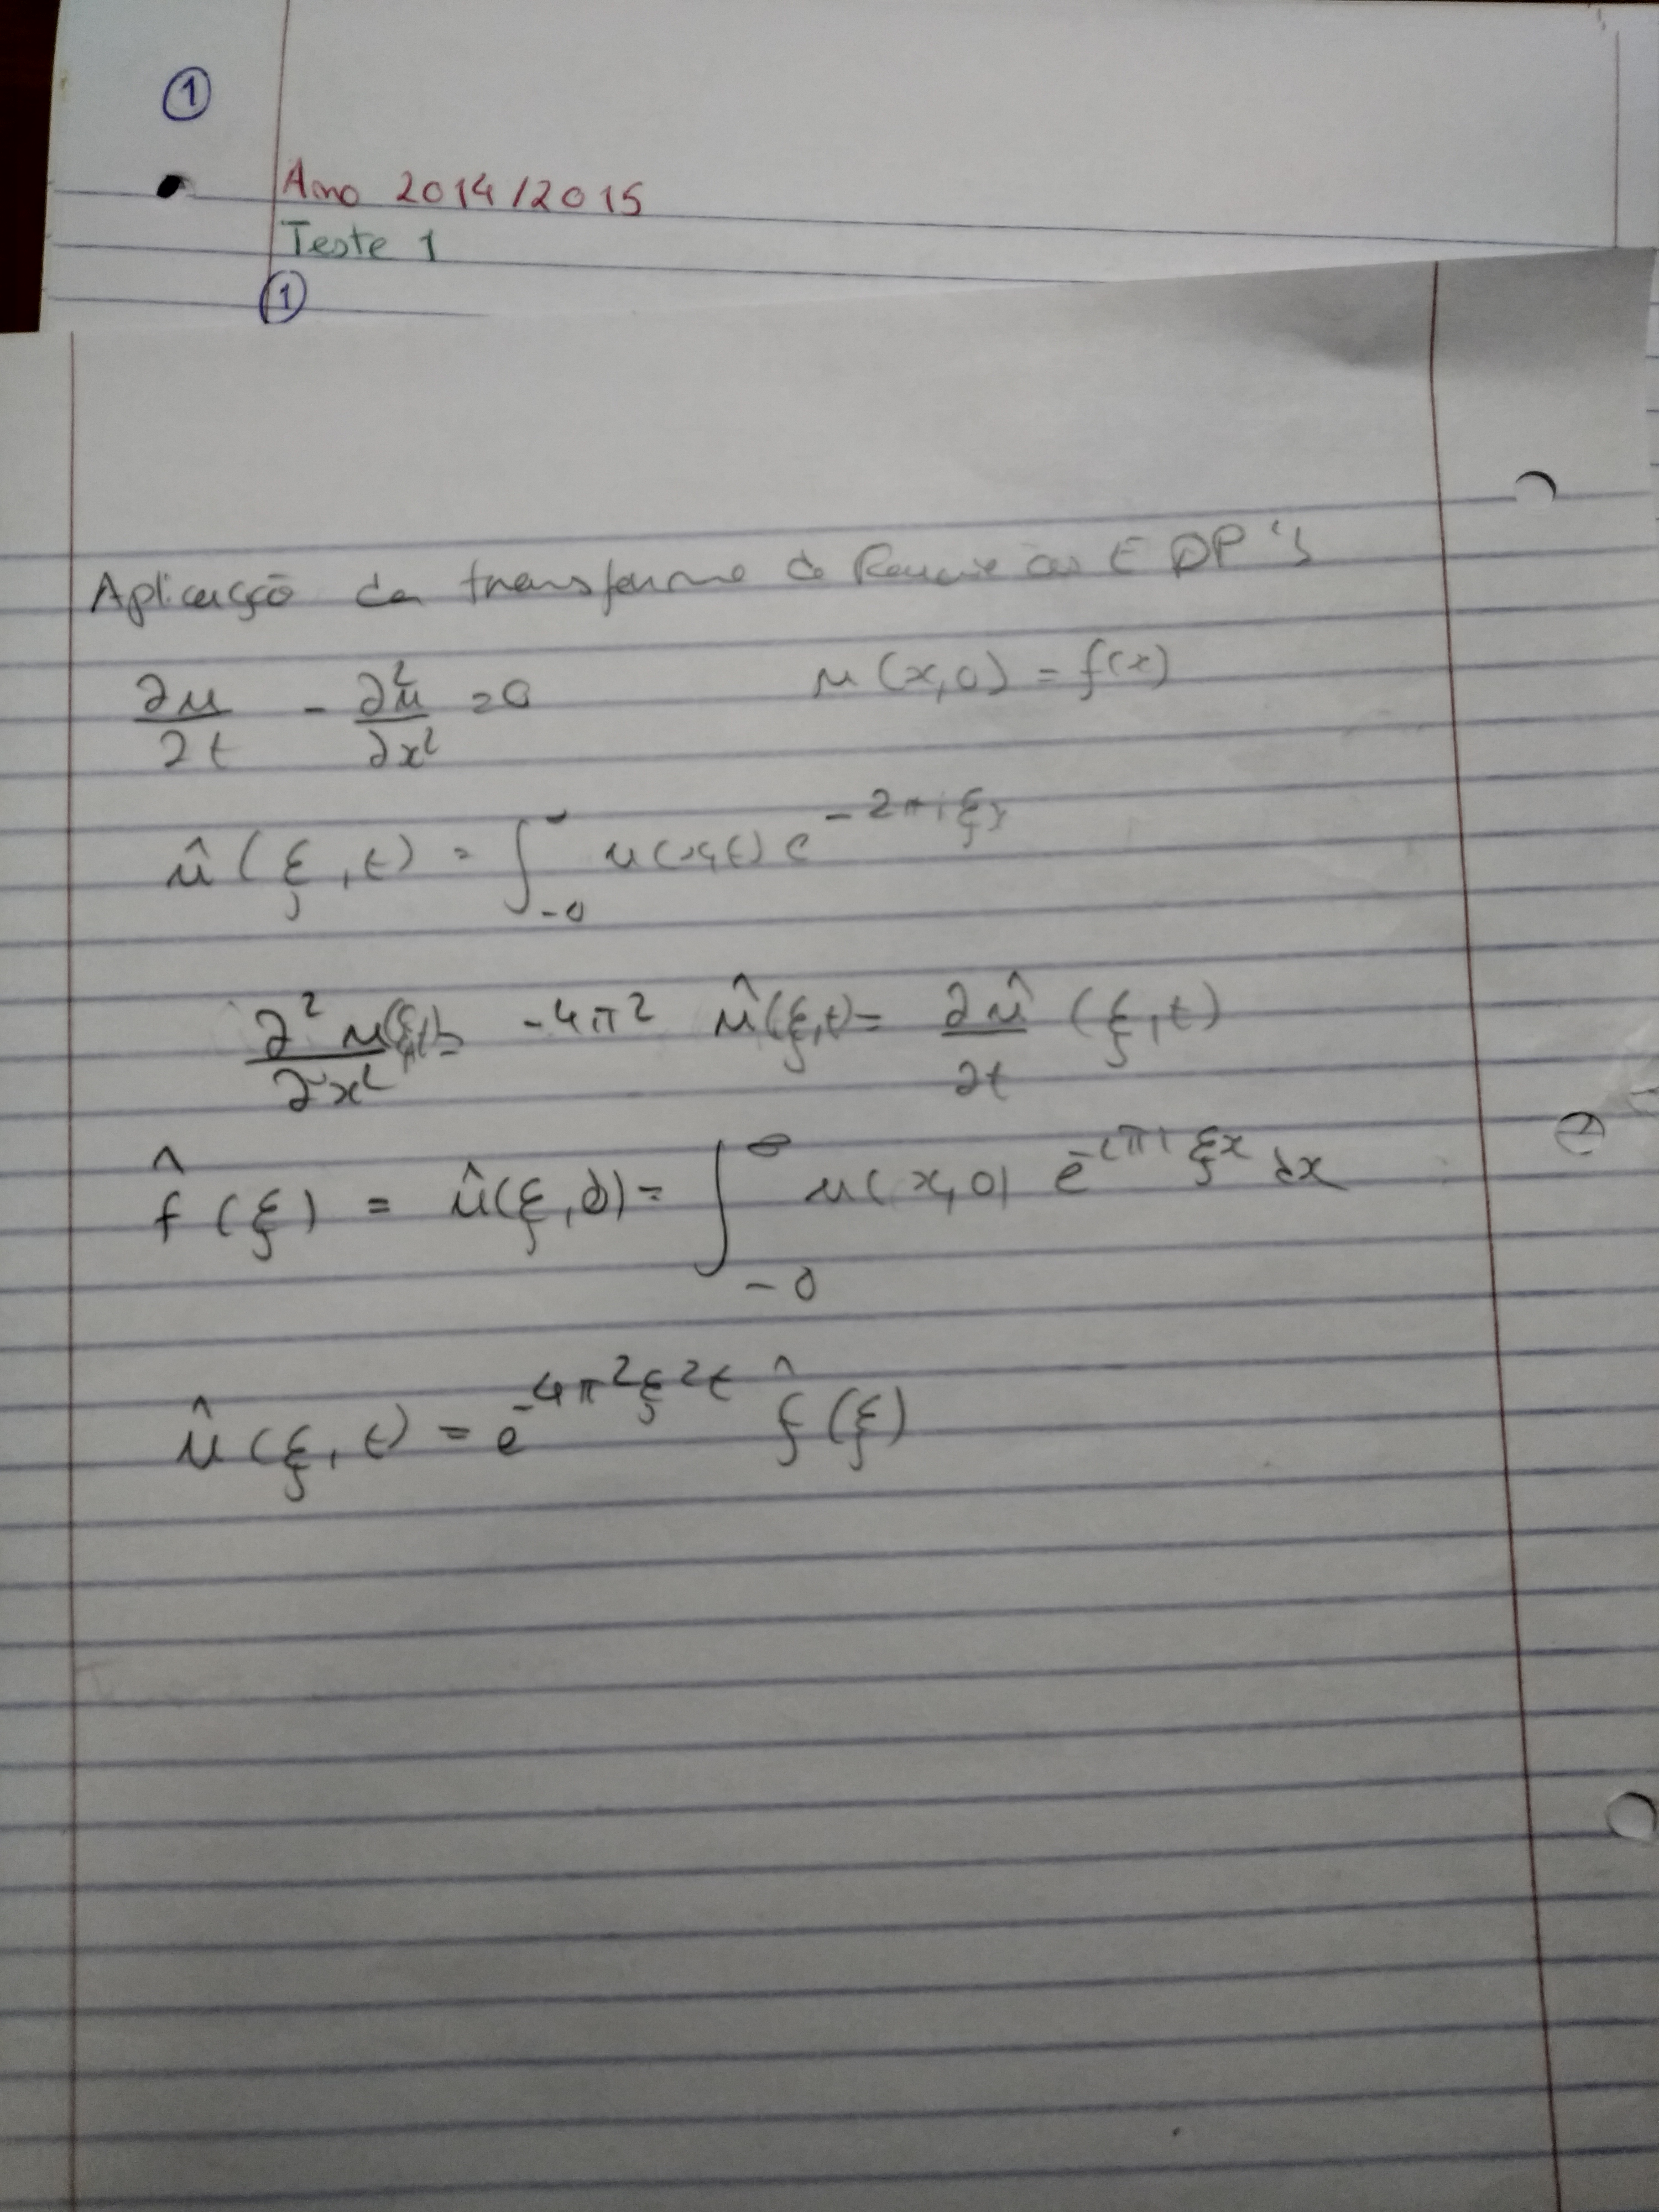 ①
Ano 2014/2015
Teste 1
①
Aplicação da transforma de Fourier às EDP's
∂u/∂t - ∂²u/∂x² = 0 u(x,0) = f(x)
û(ξ,t) = ∫_{-0} u(x,t) e^{-2πiξx}
∂²u/∂x² (ξ,t) = -4π² û(ξ,t) = ∂û/∂t (ξ,t)
f̂(ξ) = û(ξ,0) = ∫_{-0}^{∞} u(x,0) e^{-2πiξx} dx
û(ξ,t) = e^{-4π²ξ²t} f̂(ξ)